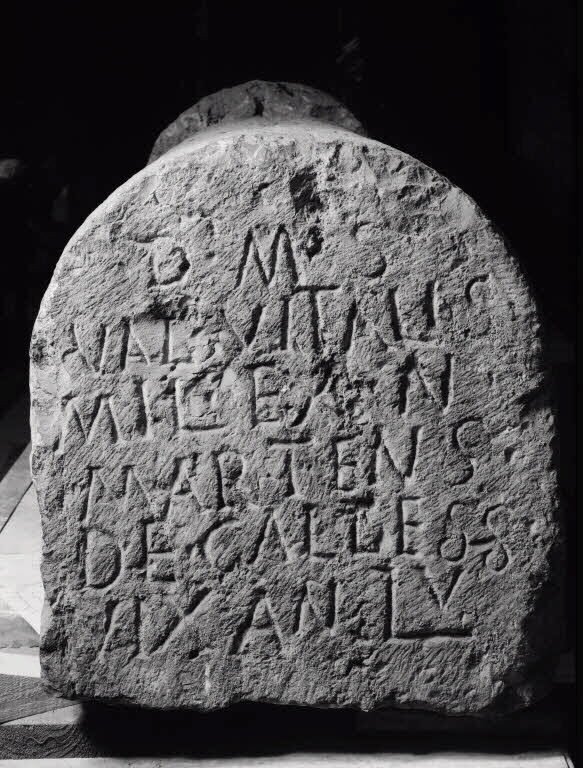 D M S
VAL VITALIS
MIL EX N
MARTENS
DE CALLE
VIX AN LV